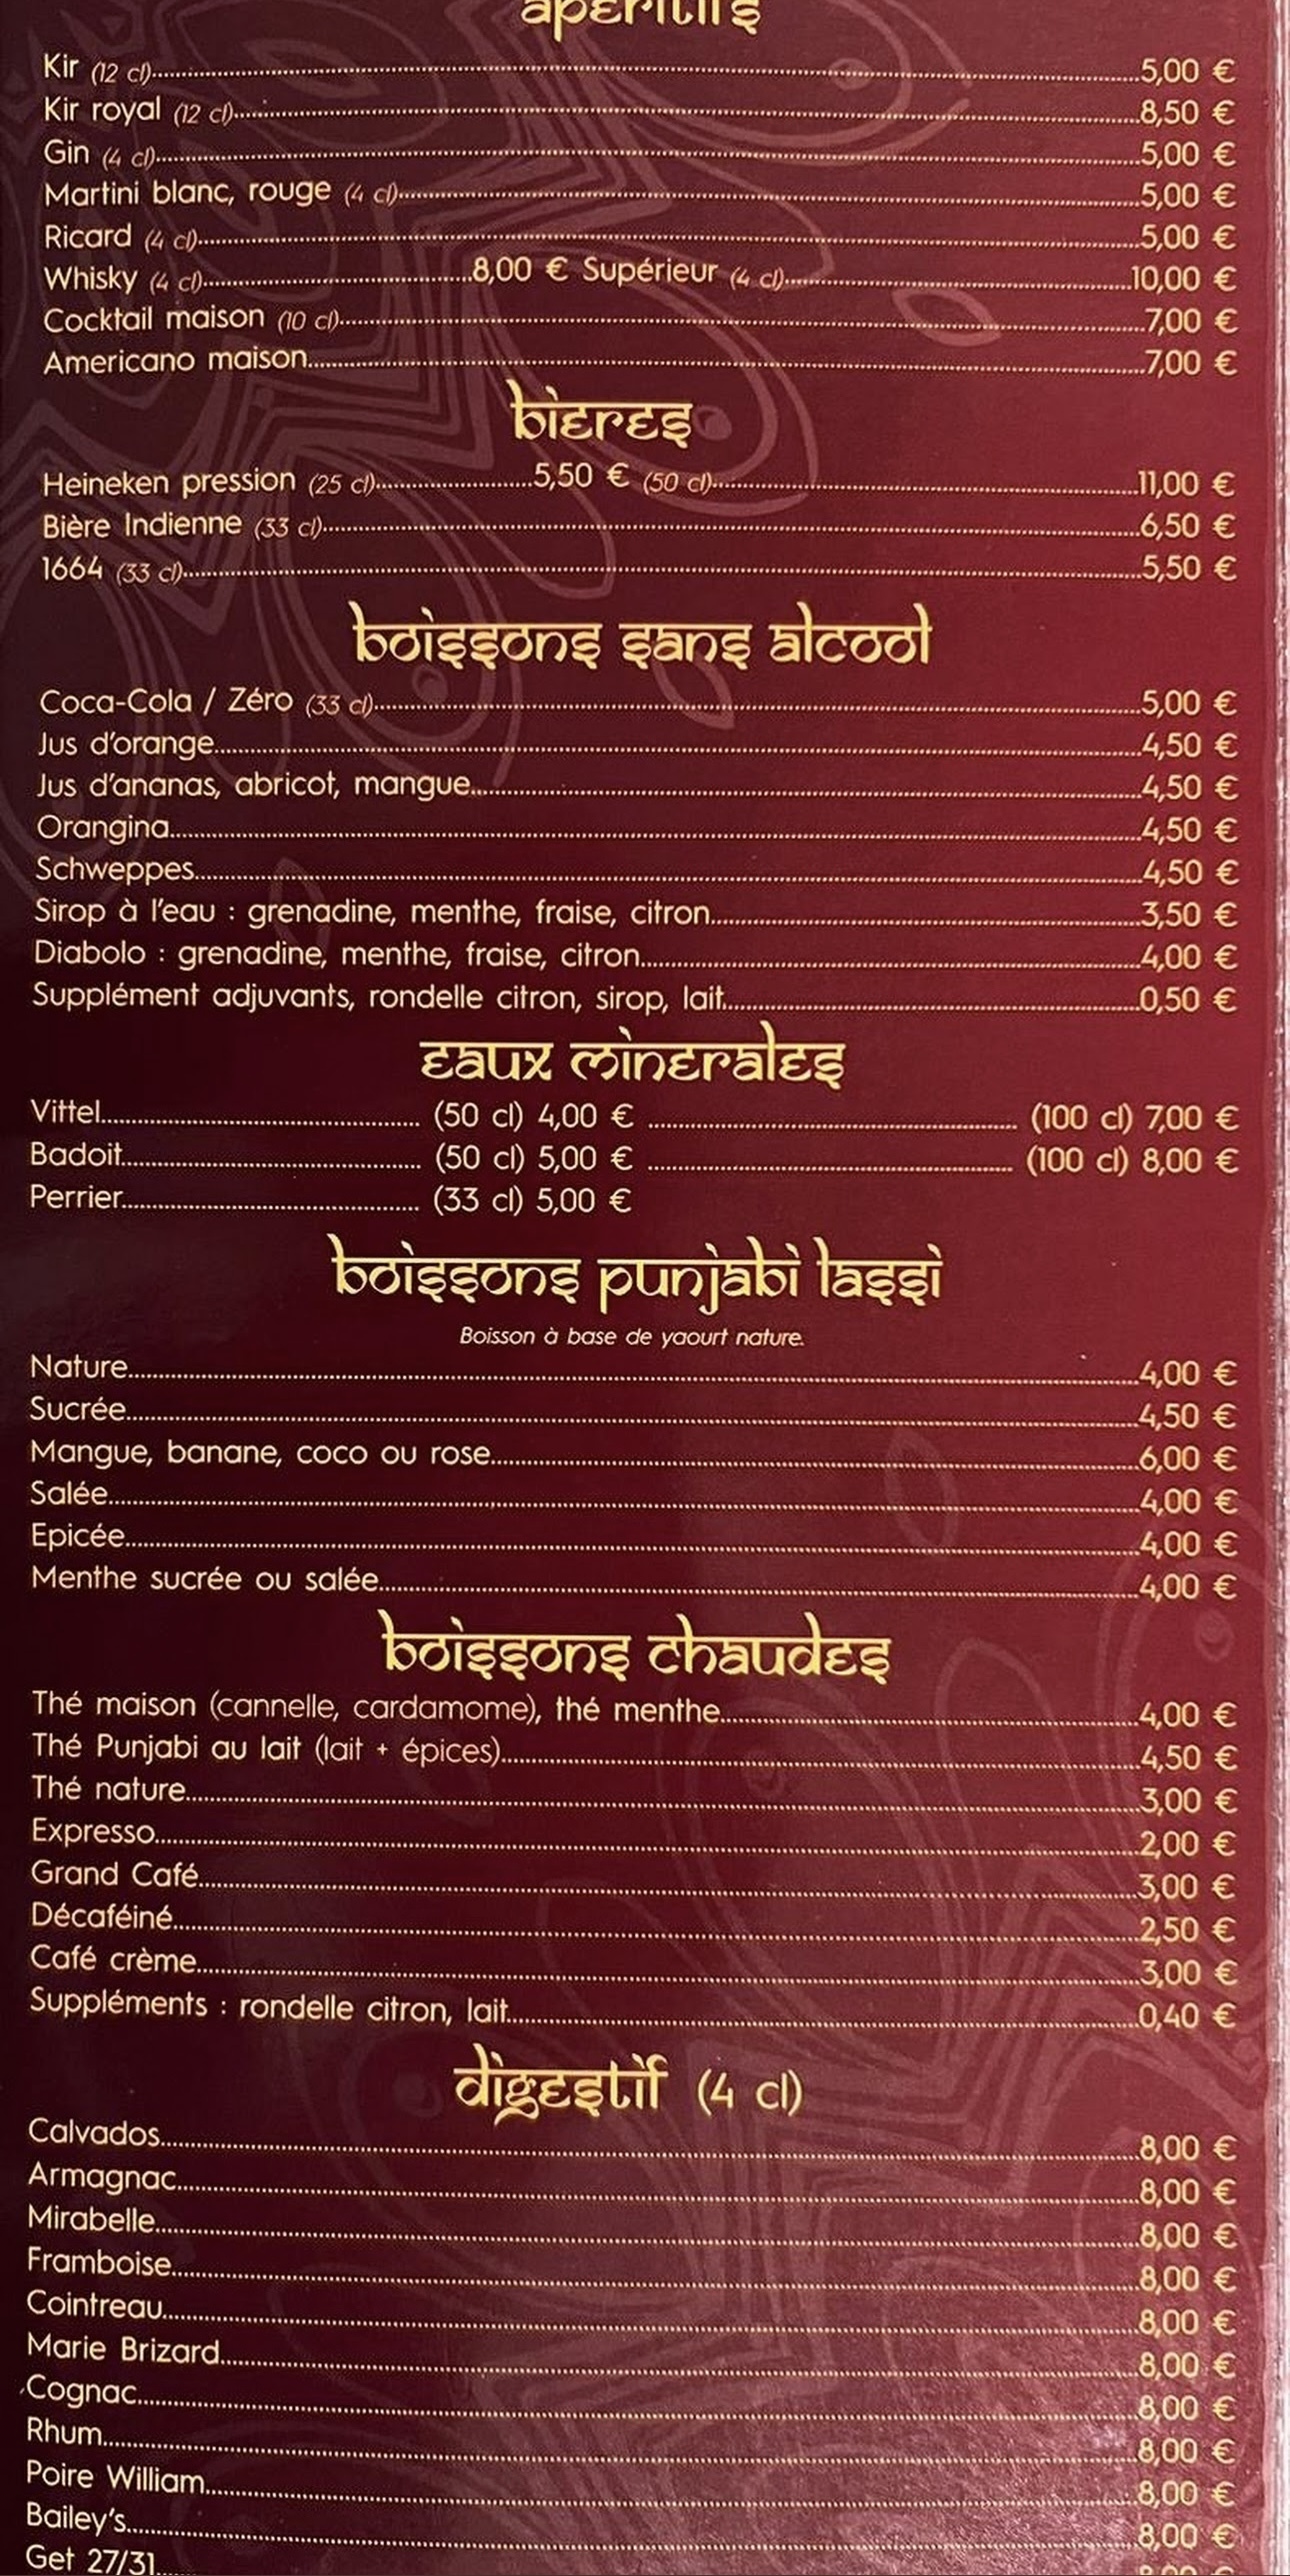 apéritifs
Kir (12 cl) 5,00 €
Kir royal (12 cl) 8,50 €
Gin (4 cl) 5,00 €
Martini blanc, rouge (4 cl) 5,00 €
Ricard (4 cl) 5,00 €
Whisky (4 cl) 8,00 € Supérieur (4 cl) 10,00 €
Cocktail maison (10 cl) 7,00 €
Americano maison 7,00 €
bières
Heineken pression (25 cl) 5,50 € (50 cl) 11,00 €
Bière Indienne (33 cl) 6,50 €
1664 (33 cl) 5,50 €
boissons sans alcool
Coca-Cola / Zéro (33 cl) 5,00 €
Jus d'orange 4,50 €
Jus d'ananas, abricot, mangue 4,50 €
Orangina 4,50 €
Schweppes 4,50 €
Sirop à l'eau : grenadine, menthe, fraise, citron 3,50 €
Diabolo : grenadine, menthe, fraise, citron 4,00 €
Supplément adjuvants, rondelle citron, sirop, lait 0,50 €
eaux minerales
Vittel (50 cl) 4,00 € (100 cl) 7,00 €
Badoit (50 cl) 5,00 € (100 cl) 8,00 €
Perrier (33 cl) 5,00 €
boissons punjabi lassi
Boisson à base de yaourt nature.
Nature 4,00 €
Sucrée 4,50 €
Mangue, banane, coco ou rose 6,00 €
Salée 4,00 €
Epicée 4,00 €
Menthe sucrée ou salée 4,00 €
boissons chaudes
Thé maison (cannelle, cardamome), thé menthe 4,00 €
Thé Punjabi au lait (lait + épices) 4,50 €
Thé nature 3,00 €
Expresso 2,00 €
Grand Café 3,00 €
Décaféiné 2,50 €
Café crème 3,00 €
Suppléments : rondelle citron, lait 0,40 €
digestif (4 cl)
Calvados 8,00 €
Armagnac 8,00 €
Mirabelle 8,00 €
Framboise 8,00 €
Cointreau 8,00 €
Marie Brizard 8,00 €
Cognac 8,00 €
Rhum 8,00 €
Poire William 8,00 €
Bailey's 8,00 €
Get 27/31